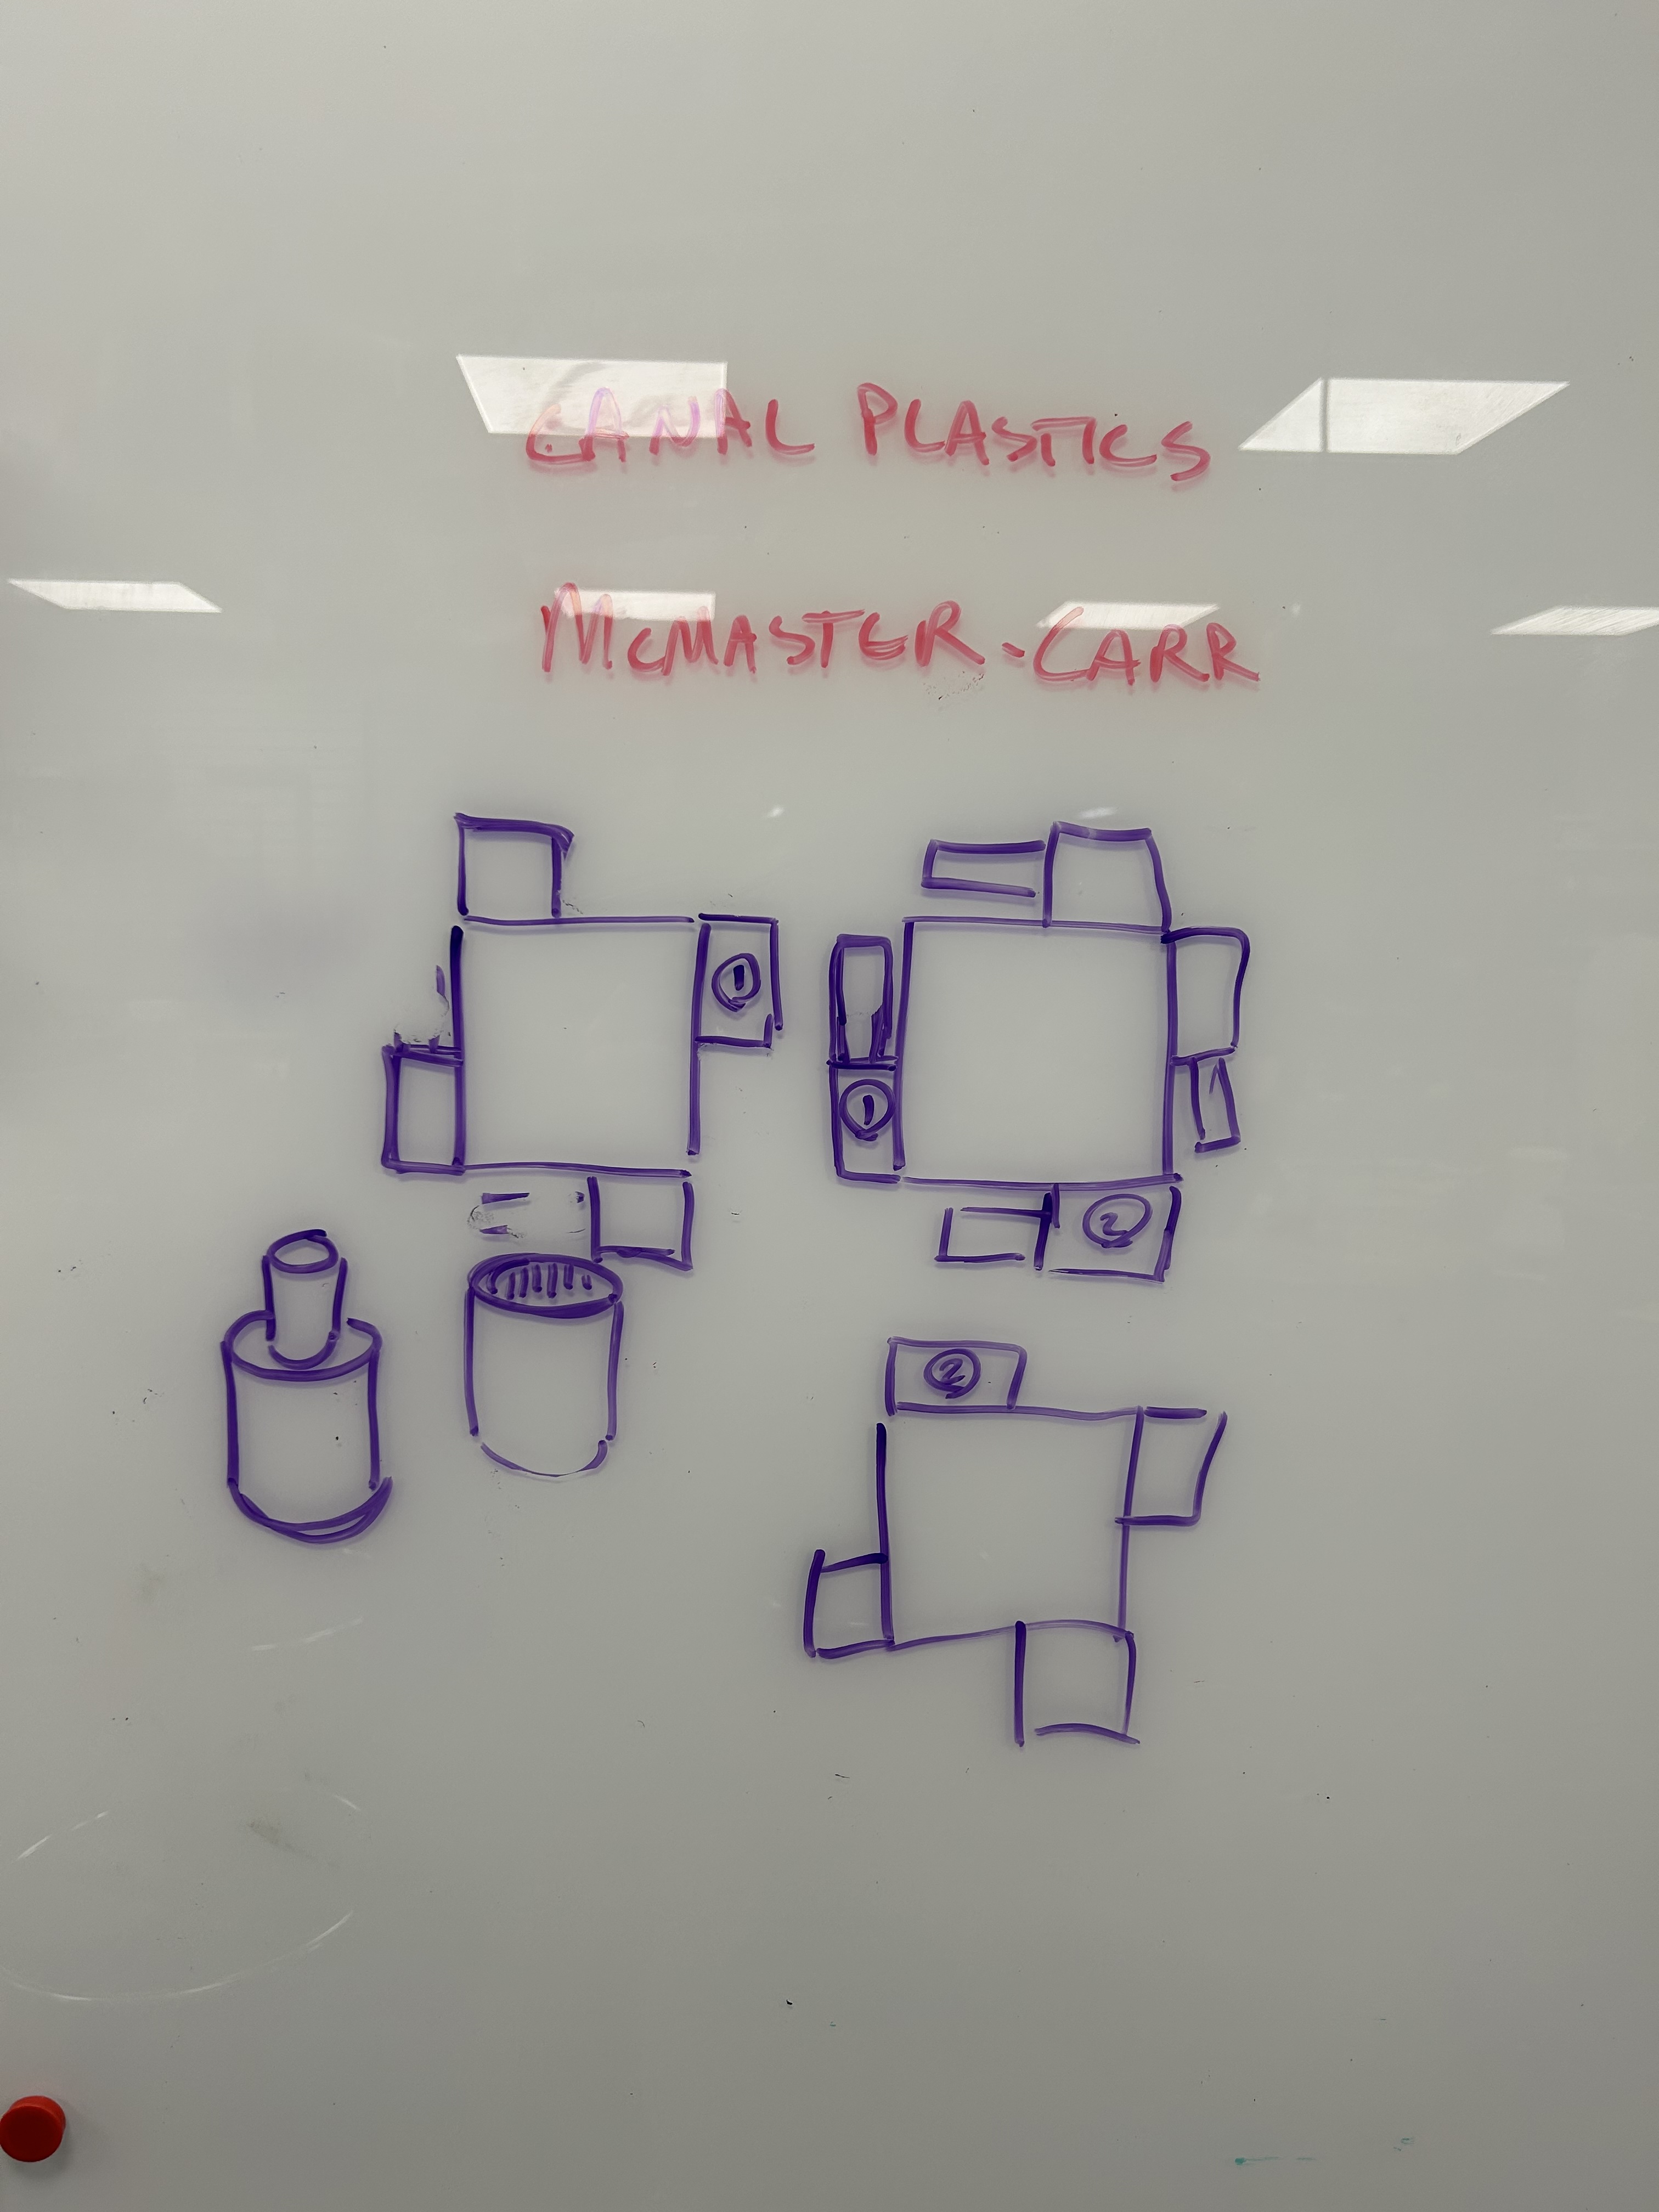 CANAL PLASTICS
McMASTER-CARR
1
1
2
2